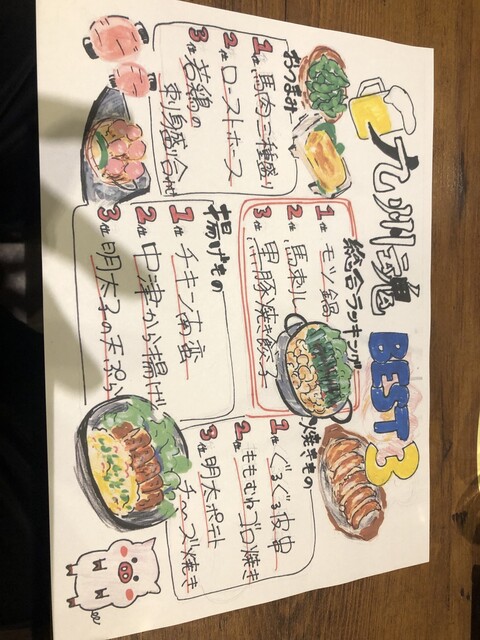 九州魂 BEST3
総合ランキング
1位 モツ鍋
2位 馬刺し
3位 黒豚焼き餃子
おつまみ
1位 馬肉三種盛り
2位 ローストホース
3位 若鶏の
刺身盛り合せ
揚げもの
1位 チキン南蛮
2位 中津から揚げ
3位 明太子の天ぷら
焼きもの
1位 ぐるぐる皮串
2位 ももむねゴロ焼き
3位 明太ポテト
チーズ焼き